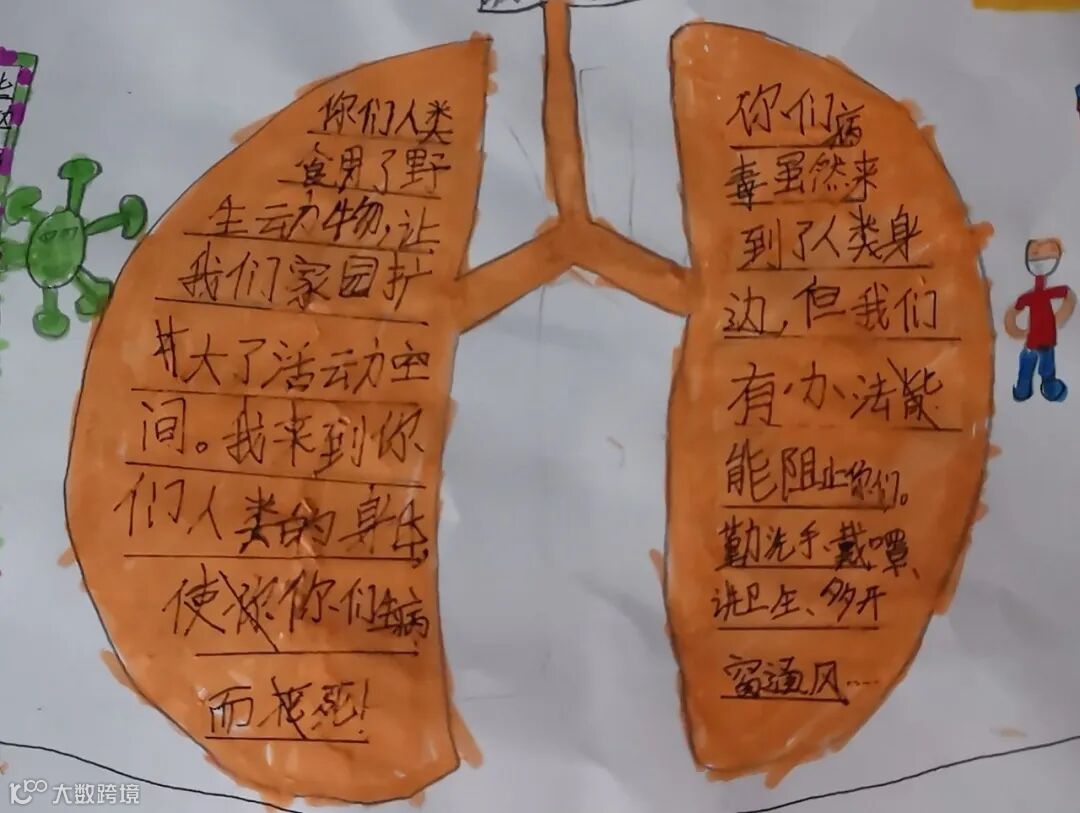 你们人类
食男了野
生动物,让
我们家园扩
大了活动空
间。我来到你
们人类的身上,
使你们生病
而死!
你们病
毒虽然来
到了人类身
边,但我们
有办法
能阻止你们。
勤洗手、戴口罩、
讲卫生、多开
窗通风……
大数跨境